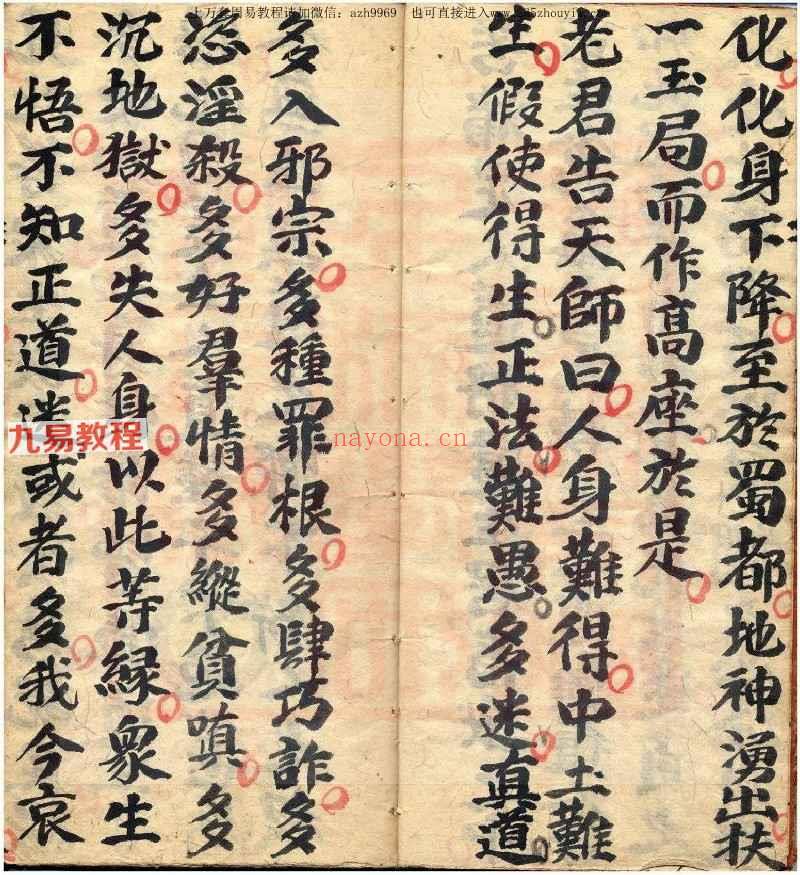 上万套周易教程请加微信：azh9969 也可直接进入
化化身下降至於蜀都地神湧出扶
一玉局而作高座於是
老君告天師曰人身難得中土難
生假使得生正法難愚多迷真道
多入邪宗多種罪根多肆巧詐多
恣淫殺多好羣情多縱貧嗔多
沉地獄多失人身以此等緣衆生
不悟不知正道迷或者多我今哀
九易教程
nayona.cn